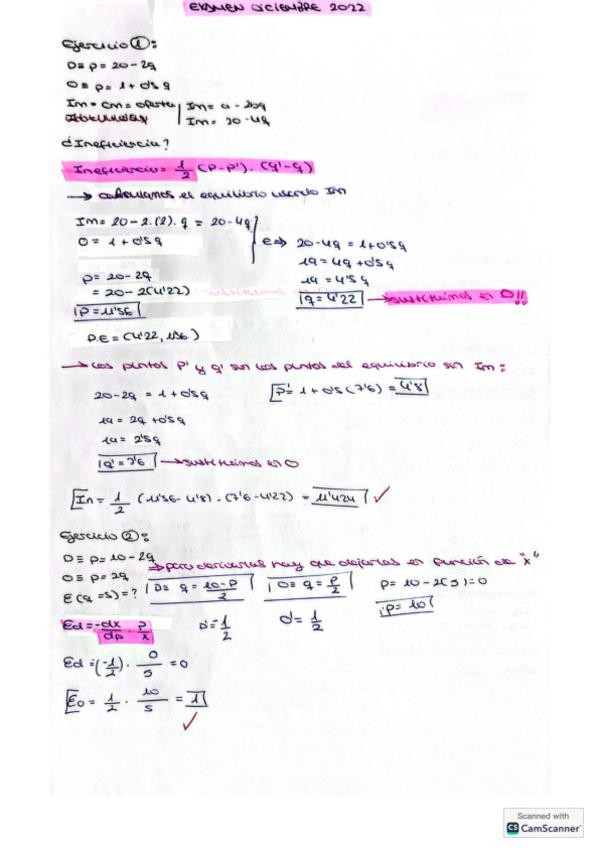 EXAMEN DICIEMBRE 2022
Ejercicio ①:
D ≡ p = 20 - 2q
O ≡ p = 1 + 0'5 q
Im = Cm = oferta / Im = a - 2bq
Im = 20 - 4q
¿Ineficiencia?
Ineficiencia = 1/2 (p - p') · (q' - q)
→ calculamos el equilibrio usando Im
Im = 20 - 2·(2)·q = 20 - 4q
O = 1 + 0'5q
e ⇒ 20 - 4q = 1 + 0'5q
19 = 4q + 0'5q
19 = 4'5q
q = 4'22 → sustituimos en O!!
p = 20 - 2q
= 20 - 2(4'22)
p = 11'56
P.E = (4'22, 11'56)
→ Los puntos p' y q' son los puntos del equilibrio sin Im:
20 - 2q = 1 + 0'5q
19 = 2q + 0'5q
19 = 2'5q
q' = 7'6 → sustituimos en O
p' = 1 + 0'5(7'6) = 4'8
In = 1/2 (11'56 - 4'8) · (7'6 - 4'22) = 11'424 ✓
Ejercicio ②:
D ≡ p = 10 - 2q
→ para derivarlas hay que dejarlas en función de "x"
O ≡ p = 2q
E (q = 5) = ?
D ≡ q = 10 - p / 2
O ≡ q = p / 2
p = 10 - 2(5) = 0
p = 10
Ed = -dx/dp · p/x
d' = 1/2
O' = 1/2
Ed = (-1/2) · 0/5 = 0
Eo = 1/2 · 10/5 = 1
✓
Scanned with
CS CamScanner